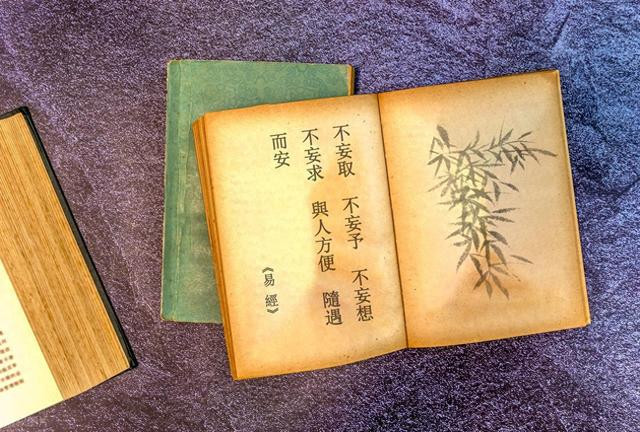 不妄取 不妄予 不妄想
不妄求 與人方便 隨遇
而安
《易經》